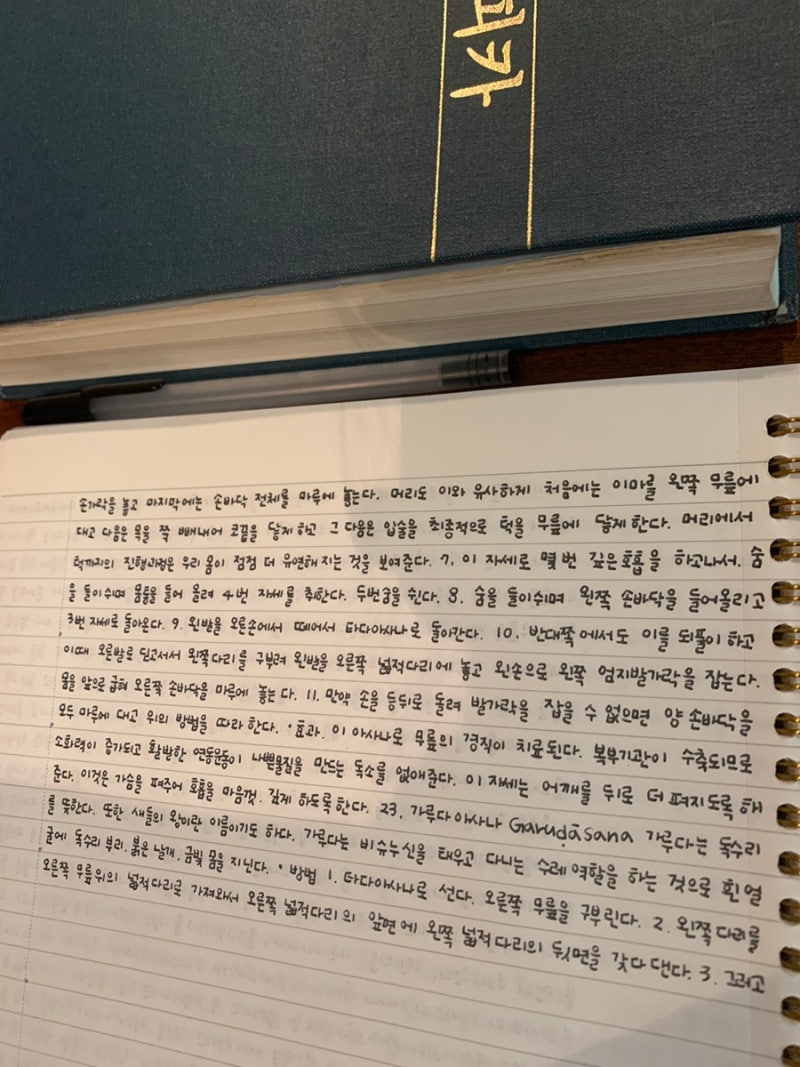 피카
손가락을 놓고 마지막에는 손바닥 전체를 마루에 놓는다. 머리도 이와 유사하게 처음에는 이마를 왼쪽 무릎에
대고 다음은 목을 쭉 빼내어 코끝을 닿게하고 그 다음은 입술을 최종적으로 턱을 무릎에 닿게한다. 머리에서
턱까지의 진행과정은 우리 몸이 점점 더 유연해 지는 것을 보여준다. 7. 이 자세로 몇 번 깊은호흡을 하고나서. 숨
을 들이쉬며 몸통을 들어 올려 4번 자세를 취한다. 두번숨을 쉰다. 8. 숨을 들이쉬며 왼쪽 손바닥을 들어올리고
3번 자세로 돌아온다. 9. 왼발을 오른손에서 떼어서 타다아사나로 돌아간다. 10. 반대쪽에서도 이를 되풀이 하고
이때 오른발로 딛고서서 왼쪽다리를 구부려 왼발을 오른쪽 넓적다리에 놓고 왼손으로 왼쪽 엄지발가락을 잡는다.
몸을 앞으로 굽혀 오른쪽 손바닥을 마루에 놓는다. 11. 만약 손을 등뒤로 돌려 발가락을 잡을 수 없으면 양 손바닥을
모두 마루에 대고 위의 방법을 따라한다. • 효과. 이 아사나로 무릎의 경직이 치료된다. 복부기관이 수축되므로
소화력이 증가되고 활발한 연동운동이 나쁜물질을 만드는 독소를 없애준다. 이 자세는 어깨를 뒤로 더 펴지도록 해
준다. 이것은 가슴을 펴주어 호흡을 마음껏. 깊게 하도록 한다. 23. 가루다아사나 Garuḍāsana 가루다는 독수리
를 뜻한다. 또한 새들의 왕이란 이름이기도 하다. 가루다는 비슈누신을 태우고 다니는 수레역할을 하는 것으로 흰 얼
굴에 독수리 부리. 붉은 날개. 금빛 몸을 지닌다. • 방법 1. 타다아사나로 선다. 오른쪽 무릎을 구부린다. 2. 왼쪽다리를
오른쪽 무릎위의 넓적다리로 가져와서 오른쪽 넓적다리의 앞면에 왼쪽 넓적다리의 뒷면을 갖다 댄다. 3. 그리고